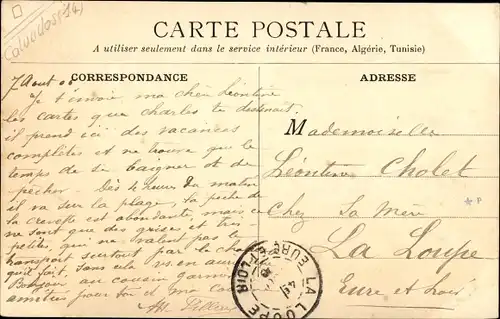 Calvados (14)
CARTE POSTALE
A utiliser seulement dans le service intérieur (France, Algérie, Tunisie)
CORRESPONDANCE
ADRESSE
7 Aout
Je t'envoie, ma chère Léontine
les cartes que Charles te destinait.
il prend ici des vacances
complètes et ne trouve que le
temps de se baigner et de
pêcher. Dès 4 heures du matin
il va sur la plage, la pêche de
la crevette est abondante, mais ce
ne sont que des grises et
petites, qui ne valent pas le
transport surtout par la
qu'il fait. Sans cela
Bonjour au cousin
amitiés pour toi et ma
Mademoiselle
Léontine Cholet
Chez Sa Mère
La Loupe
Eure et Loir
LA LOUPE
EURE-ET-LOIR